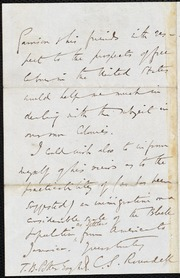 Garrison & his friends with res-
pect to the prospects of free
labour in the United States
would help us much in
dealing with the subject in
our own Islands.
I wish also to inform
myself of his views as to the
practicability (if as has been
suggested) of an emigration on a
considerable scale of the Black
population from America to
Jamaica. Yours truly
C. S. Roundell